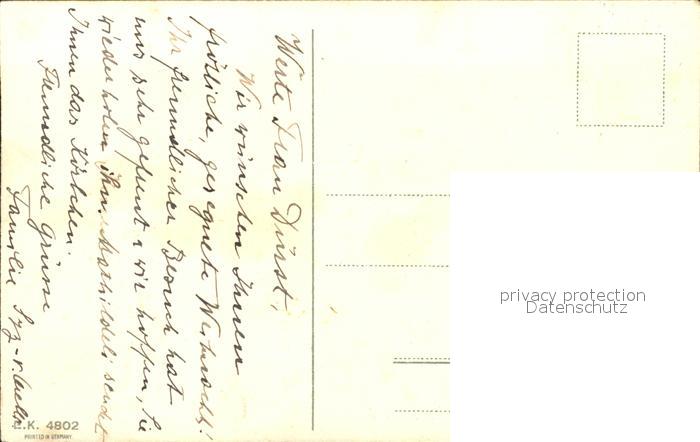 Werte Frau Dürst,
Wir wünschen Ihnen
fröhliche, gesegnete Weihnacht!
Ihr freundlicher Besuch hat
uns sehr gefreut u wir hoffen, Sie
wiederholen ihn. Mathildeli sendet
Ihnen das Körbchen.
Freundliche Grüsse
Familie
privacy protection
Datenschutz
E.K. 4802
PRINTED IN GERMANY.